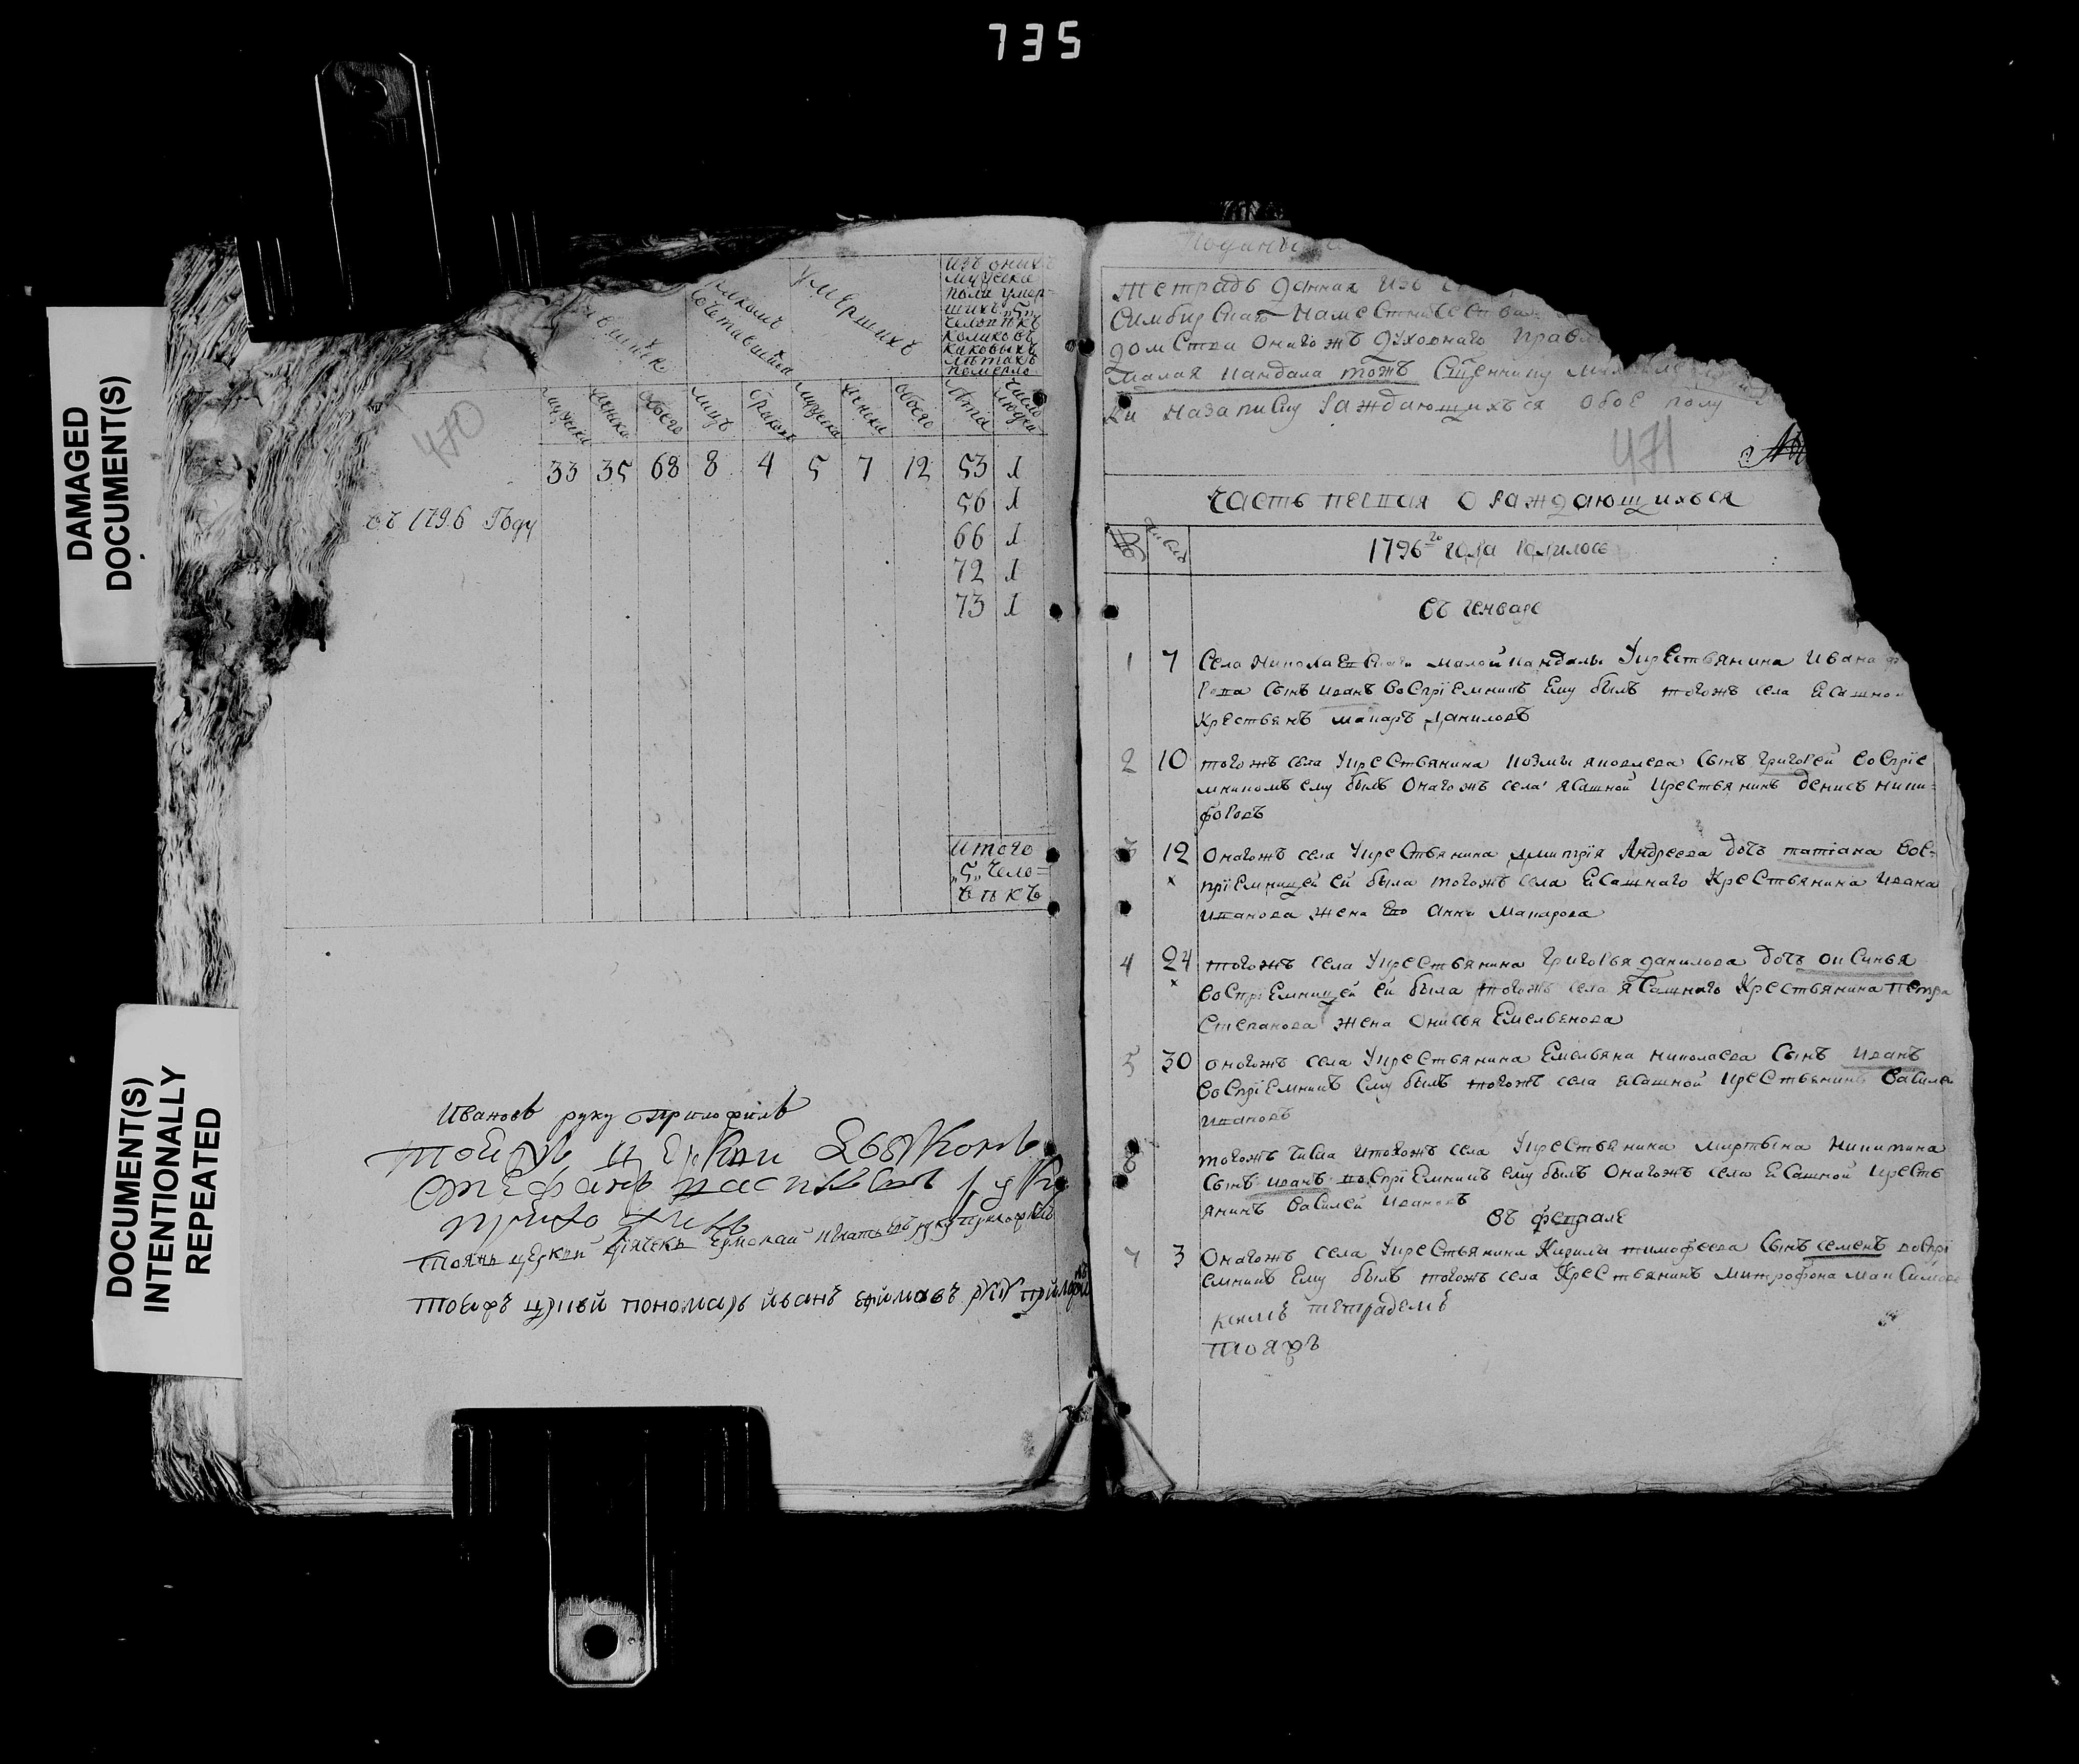 735
DAMAGED
DOCUMENT(S)
DOCUMENT(S)
INTENTIONALLY
REPEATED
470
умершихъ
изъ онихъ
мужеска
пола умер-
шихъ „5„
человѣкъ
колико въ
каковыхъ
лѣтахъ
померло
мужска
женска
обоего
лицъ
браковъ
мужеска
женска
обоего
лѣта
число людей
33 35 68 8 4 5 7 12 53 1
56 1
въ 1796 Году
66 1
72 1
73 1
итого
„5„ чело=
вѣкъ
Ивановъ руку приложилъ
тоежъ церкви дьяконъ
Стефанъ руку
приложилъ
тояжъ церкви дячекъ Ермолай Игнатьевъ руку приложилъ
тоежъ црквй пономарь йванъ ефимовъ руку приложи
тетрадь данная изъ
Симбирскаго намесничества
домства онаго жъ духовнаго правл
малая кандала тожъ Сщеннику
ки назаписку раждающихъся обоего полу
471
часть первая о раждающихься
№ число
1796го года родилося
въ генваре
1 7 Села Николаевскаго малой кандалы укрестьянина ивана
рова сынъ иванъ воспрїемникъ ему былъ тогожъ села ясашной
крестьянъ макаръ даниловъ
2 10 тогожъ села укрестьянина козмы яковлева сынъ григорей воспрїе
мникомъ ему былъ онагожъ села ясашной крестьянинъ денисъ ники=
форовъ
3 12 онагожъ села укрестьянина дмитрїя Андреева дочь татіана вос=
прїемницей ей была тогожъ села ясашнаго крестьянина ивана
иванова жена ево анна макарова
4 24 тогожъ села укрестьянина григорья данилова дочь оксинья
воспрїемницей ей была тогожъ села ясашнаго крестьянина петра
степанова жена онисья Емельенова
5 30 онагожъ села укрестьянина Емельяна николаева сынъ иванъ
воспрїемникъ ему былъ тогожъ села ясашной крестьянинъ василей
ивановъ
6 тогожъ числа итогожъ села укрестьянина мартына никитина
сынъ иванъ воспрїемникъ ему былъ онагожъ села ясашной кресть
янинъ василей ивановъ
въ феврале
7 3 Онагожъ села укрестьянина Кирилы тимофеева сынъ семенъ воспрї
емникъ ему былъ тогожъ села крестьянинъ митрофона максимова
къ симъ тетрадемъ
тояжъ